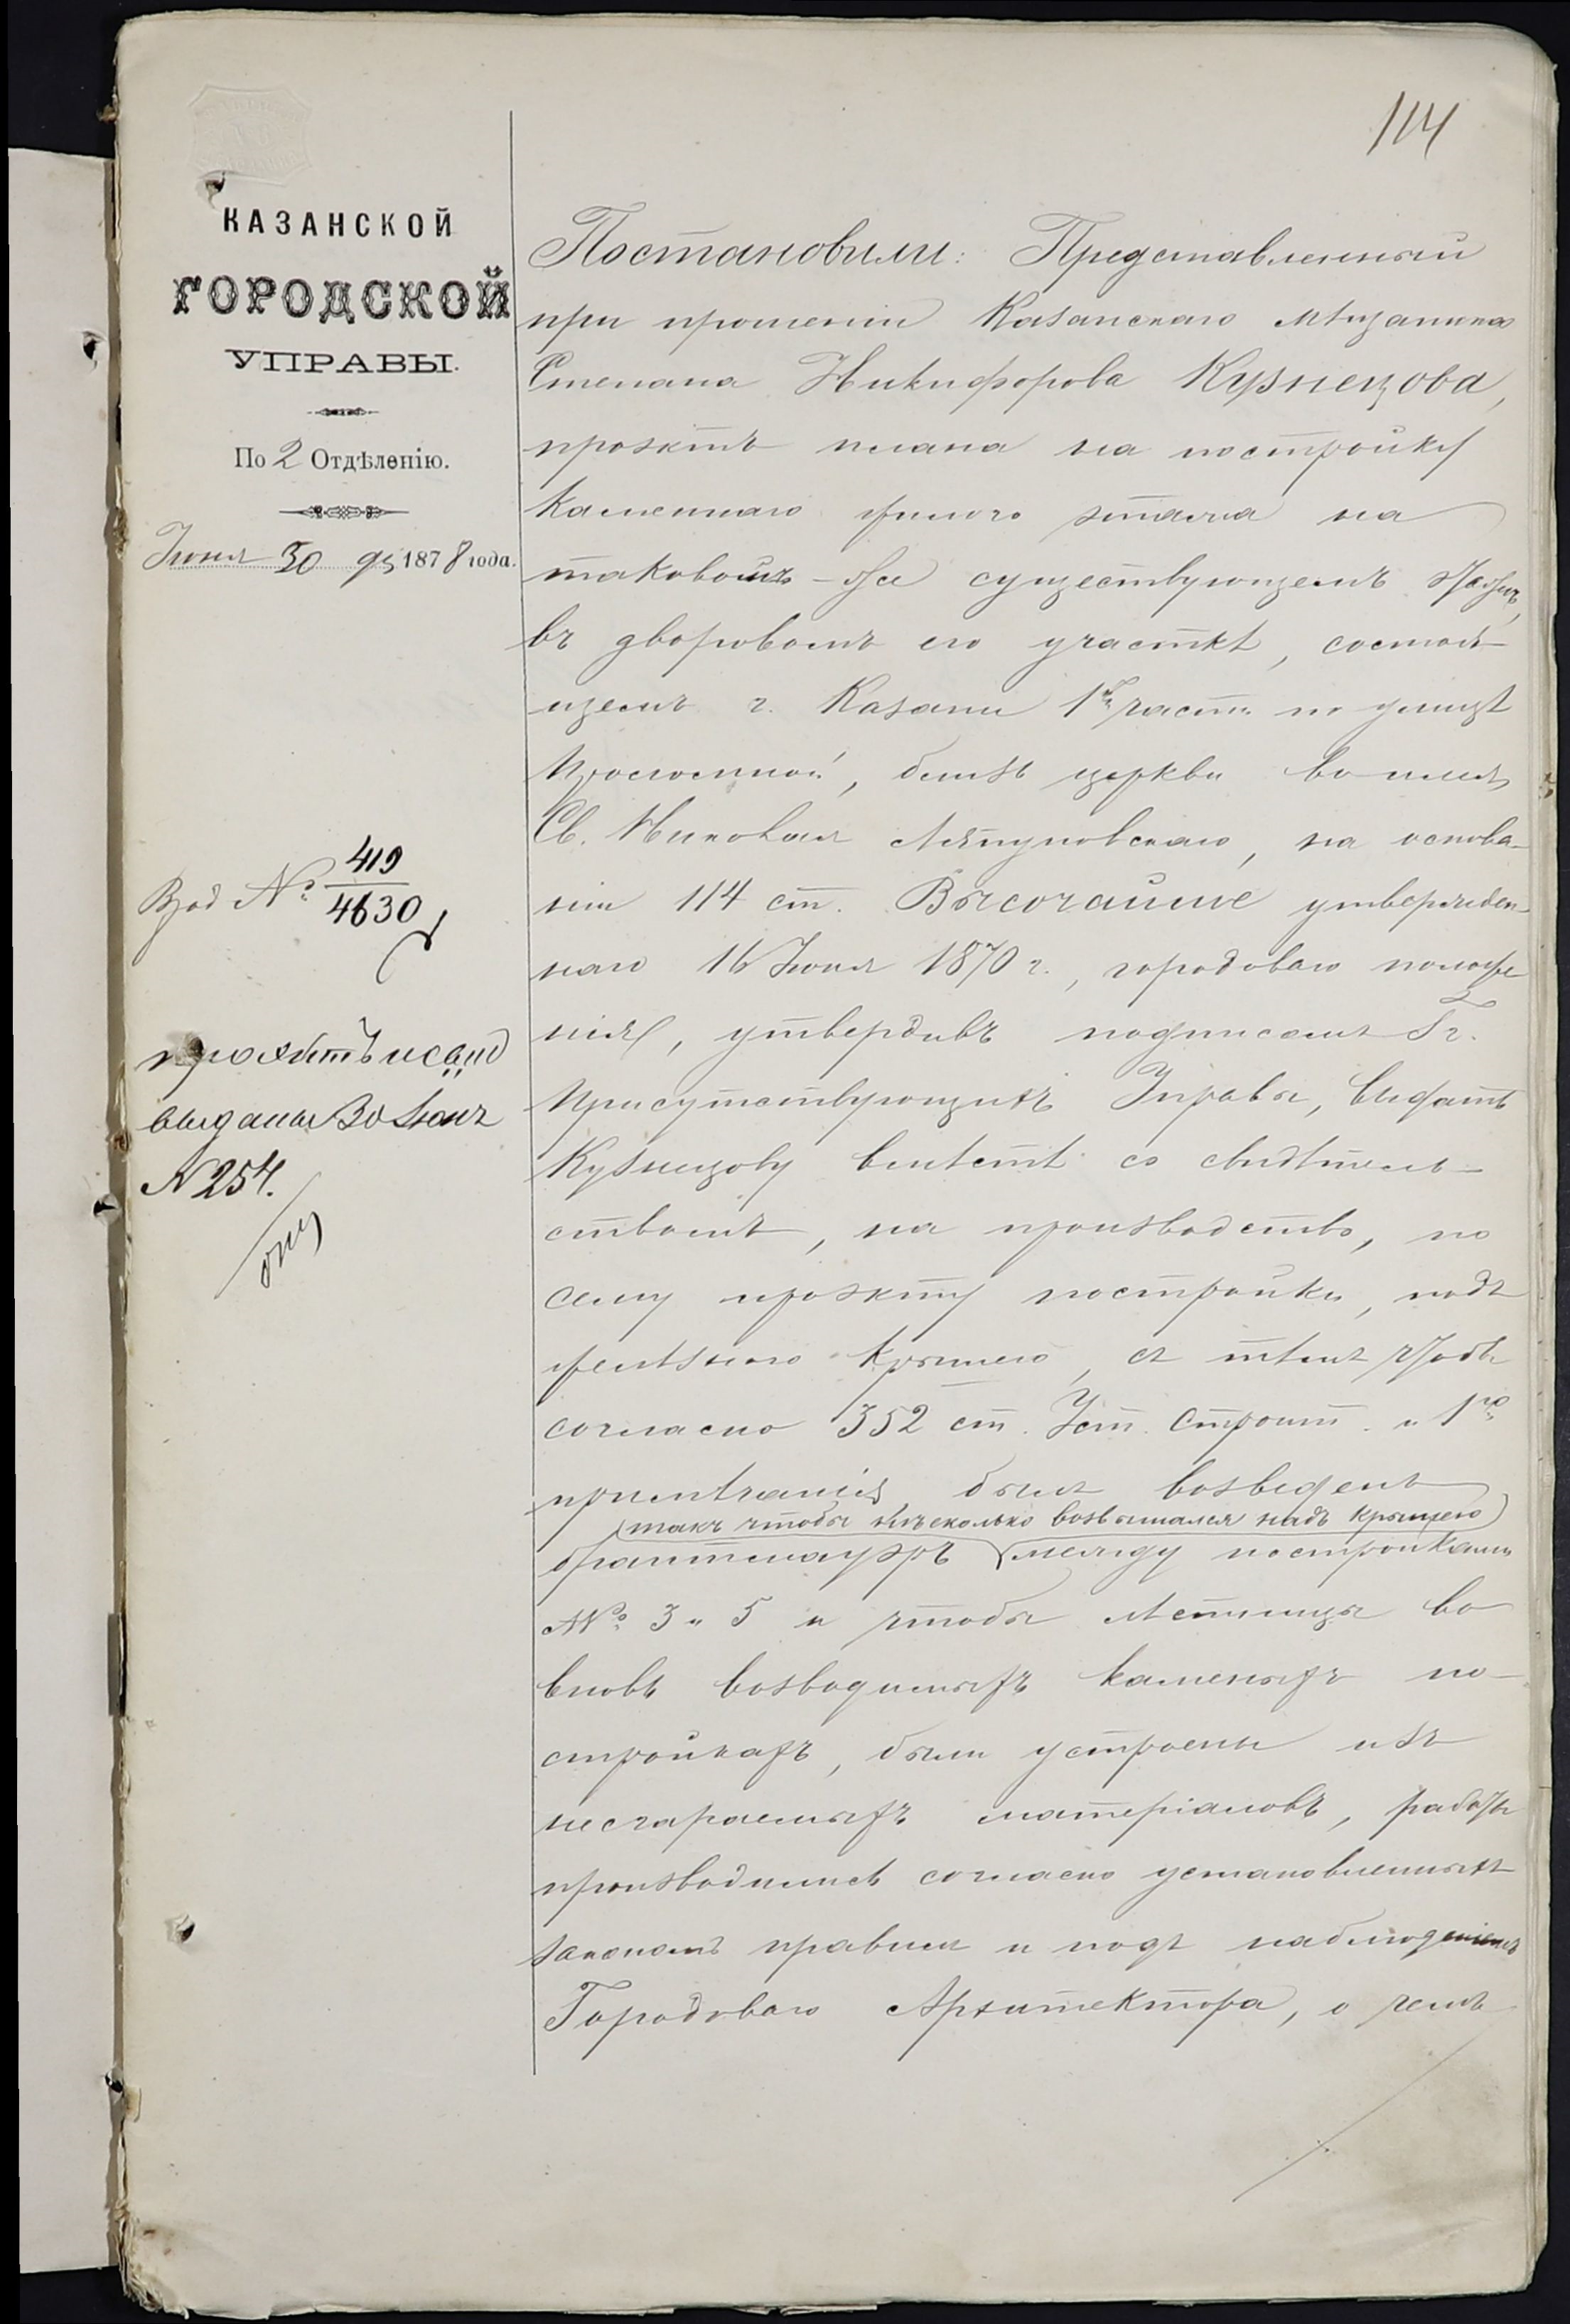 114
КАЗАНСКОЙ
ГОРОДСКОЙ
УПРАВЫ.
По 2 Отдѣленію.
Іюня 30 дня 1878 года.
Вход №: 419
4630
проэктъ и свид
выданы 30 Іюня
№ 254.
Постановили: Представленный
при прошеніи Казанскаго мѣщанина
Степана Никифорова Кузнецова,
проэктъ плана на постройку
каменнаго жилого этажа на
таковомъ-же существующемъ этажѣ,
въ дворовомъ его участкѣ, состоя-
щемъ г. Казани 1й части по улицѣ
Проломной, близь церкви во имя
Св. Николая Ляпуновскаго, на основа-
ніи 114 ст. Высочайше утвержден-
наго 16 Іюня 1870 г., городоваго положе
нія, утвердивъ подписомъ Гг.
Присутствующихъ Управы, выдать
Кузнецову вмѣстѣ со свидѣтель-
ствомъ, на производство, по
сему проэкту постройки, подъ
желѣзною крышею, съ тѣмъ чтобъ
согласно 352 ст. Уст. Строит. и 1го
примѣчанія былъ возведенъ
(такъ чтобы нѣсколько возвышался надъ крышею)
брантмауэръ между постройками
№№ 3 и 5 и чтобы лѣстницы во
вновь возводимыхъ каменыхъ по-
стройкахъ, были устроены изъ
несгараемыхъ матеріаловъ, работы
производились согласно установленныхъ
закономъ правилъ и подъ наблюденіемъ
Городоваго Архитектора, о чемъ